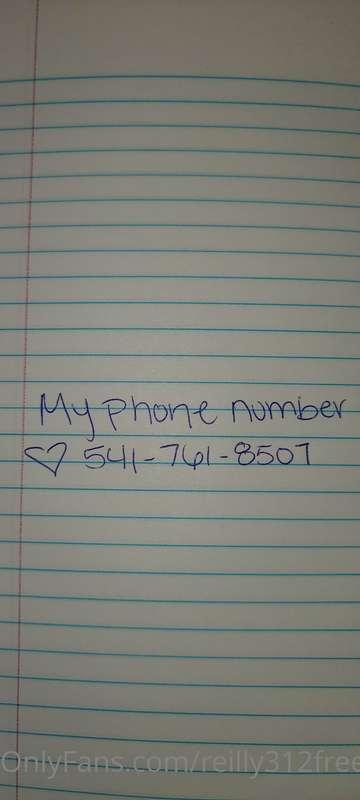 My phone number
♡ 541-761-8507
OnlyFans.com/reilly312free